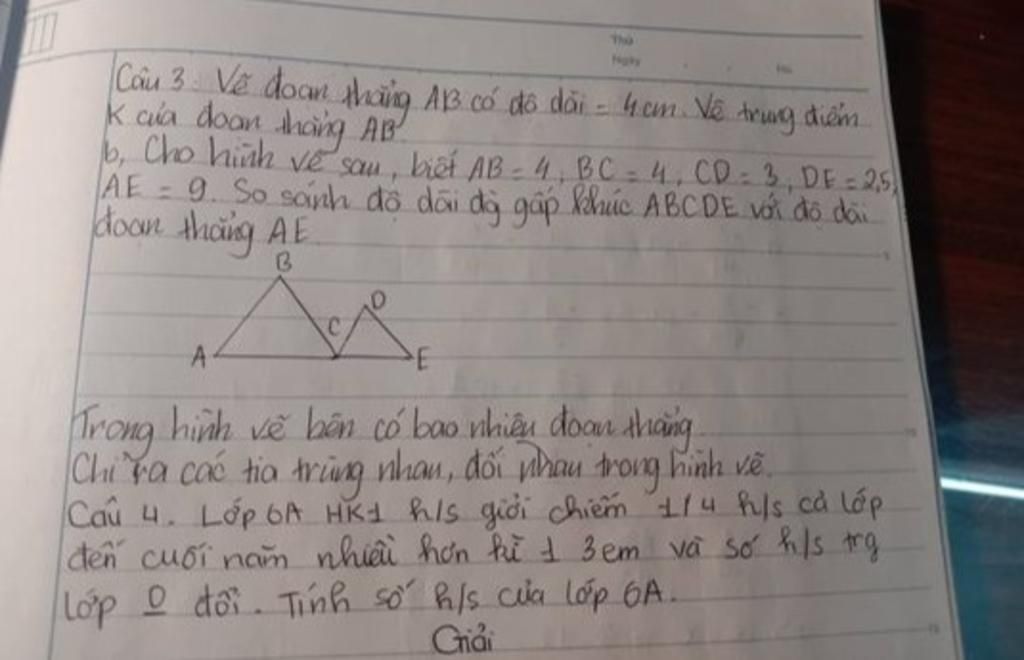 Thứ
Ngày
Câu 3. Vẽ đoạn thẳng AB có độ dài = 4cm. Vẽ trung điểm
K của đoạn thẳng AB
b, Cho hình vẽ sau, biết AB = 4, BC = 4, CD = 3, DE = 2,5,
AE = 9. So sánh độ dài đg gấp khúc ABCDE với độ dài
đoạn thẳng AE
B
D
C
A
E
Trong hình vẽ bên có bao nhiêu đoạn thẳng
Chỉ ra các tia trùng nhau, đối nhau trong hình vẽ.
Câu 4. Lớp 6A HK1 h/s giỏi chiếm 1/4 h/s cả lớp
đến cuối năm nhiều hơn kì 1 3em và số h/s trg
lớp 0 đổi. Tính số h/s của lớp 6A.
Giải